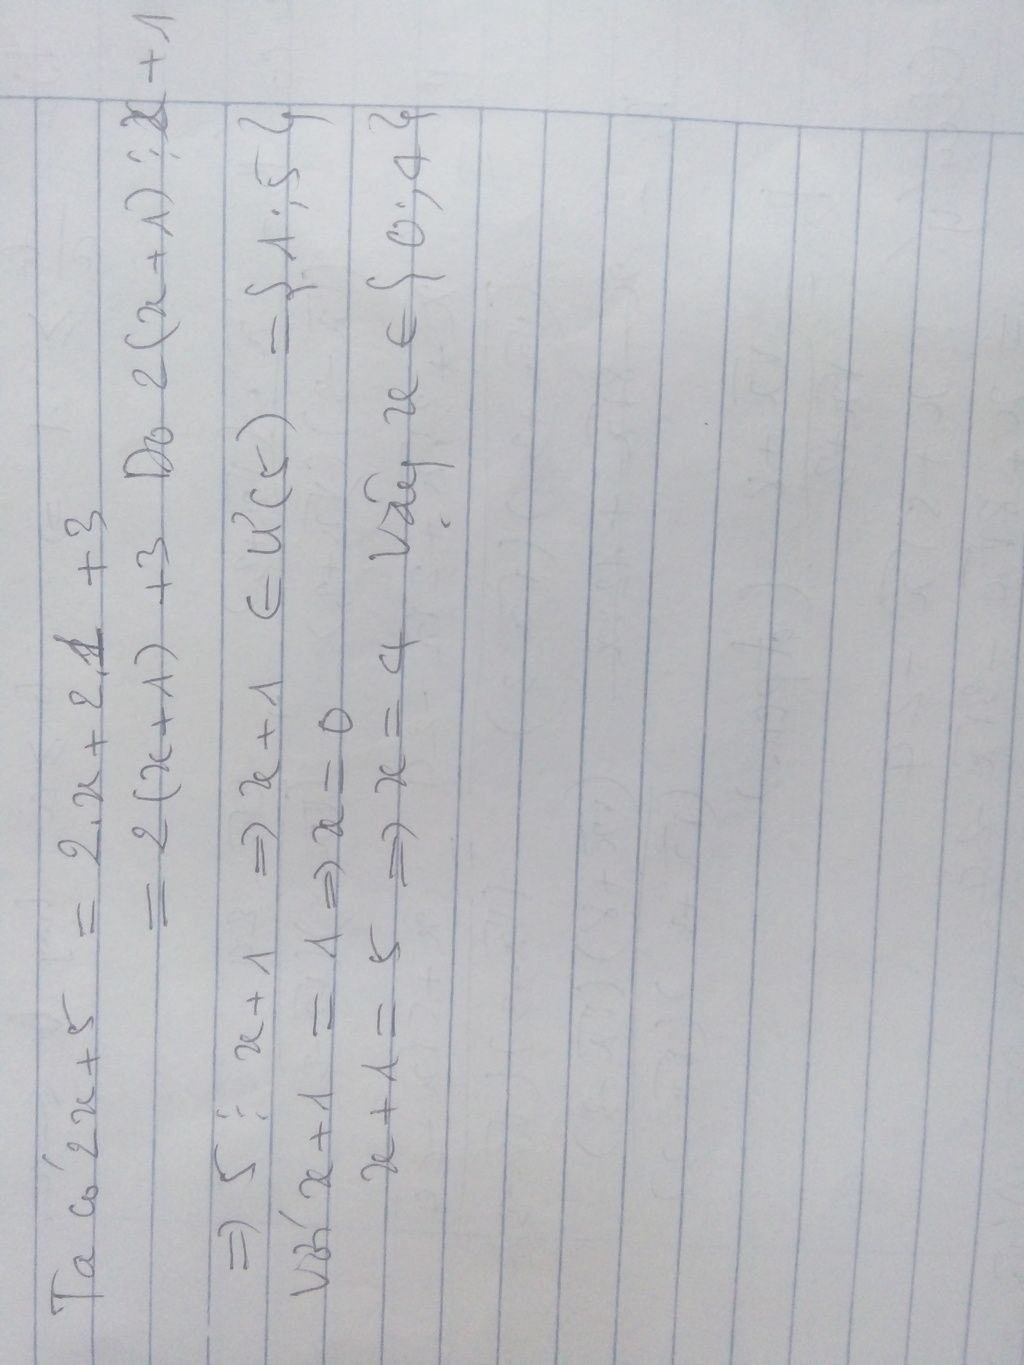 Ta có 2x+5 = 2.x+2.1 +3
= 2(x+1) +3 Do 2(x+1) ⋮ x+1
=> 5 ⋮ x+1 => x+1 ∈ Ư(5) = {1;5}
Với x+1 = 1 => x=0
x+1 = 5 => x=4 Vậy x ∈ {0;4}